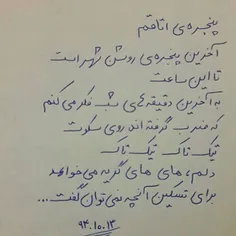 پنجره‌ی اتاقم
آخرین پنجره‌ی روشن شهر است
تا این ساعت
به آخرین دقیقه‌های شب فکر می‌کنم
که ضرب گرفته اند روی سکوت
تیک تاک تیک تاک
دلم، های های گریه می‌خواهد
برای تسکین آنچه نمی‌توان گفت...
۹۴.۱۰.۱۳